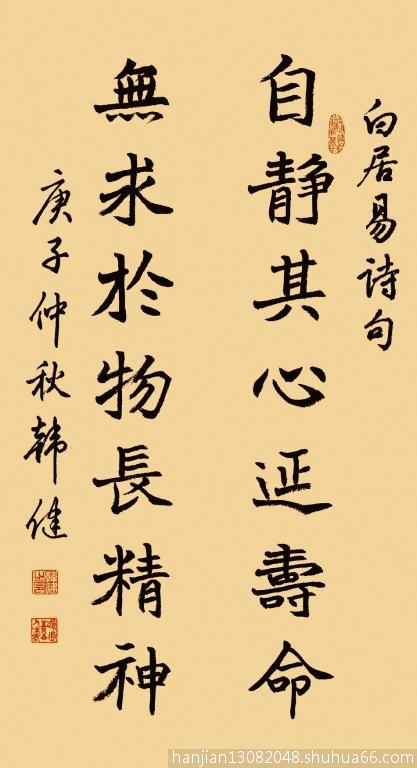 白居易诗句
自静其心延壽命
無求於物長精神
庚子仲秋韩健
hanjian13082048.shuhua66.com